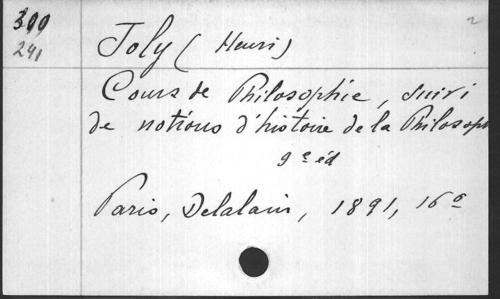 399 2
241
Joly (Henri)
Cours de Philosophie, suivi
de notions d'histoire de la Philosoph
9e éd
Paris, Delalain, 1891, 16º